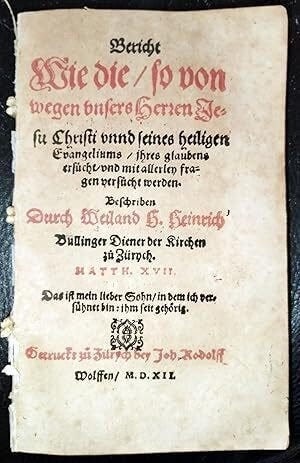 Bericht
Wie die / so von
wegen vnsers Herren Je-
su Christi vnnd seines heiligen
Evangeliums / jhres glaubens
ersücht / vnd mit allerley fra-
gen versücht werden.
Beschriben
Durch Weiland H. Heinrich
Bullinger Diener der Kirchen
zů Zürych.
MATTH. XVII.
Das ist mein lieber Sohn / in dem ich ver-
sühnet bin: ihm seit gehörig.
Getruckt zů Zürych bey Joh. Rodolff
Wolffen / M. D. XII.